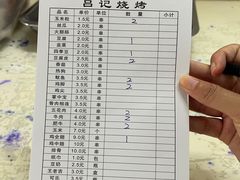 吕记烧烤
品名 单价 单位 数量 小计
玉米粒 1.5元 串 2
丝瓜 2.0元 串
火腿肠 2.0元 串
豆腐 2.0元 串
韭菜 2.0元 串 1
四季豆 2.0元 串 1
豆腐皮 2.5元 串 2
香菇 3.0元 串
热狗 3.0元 串
鱿鱼 3.0元 串
鸡脆 3.0元 串
鸡尖 3.5元 串
掌中宝 3.0元 串
骨肉相连 3.0元 串
五花肉 3.0元 串 2
牛肉 3.0元 串 2
肥牛 4.0元 串 2
玉米 7.0元 个 1
鸡全翅 9.0元 串 1
鸡中翅 10元 串
排骨 10.0元 串
纸巾 1.0元 包
豆奶 2.5元 瓶
王老吉
可乐